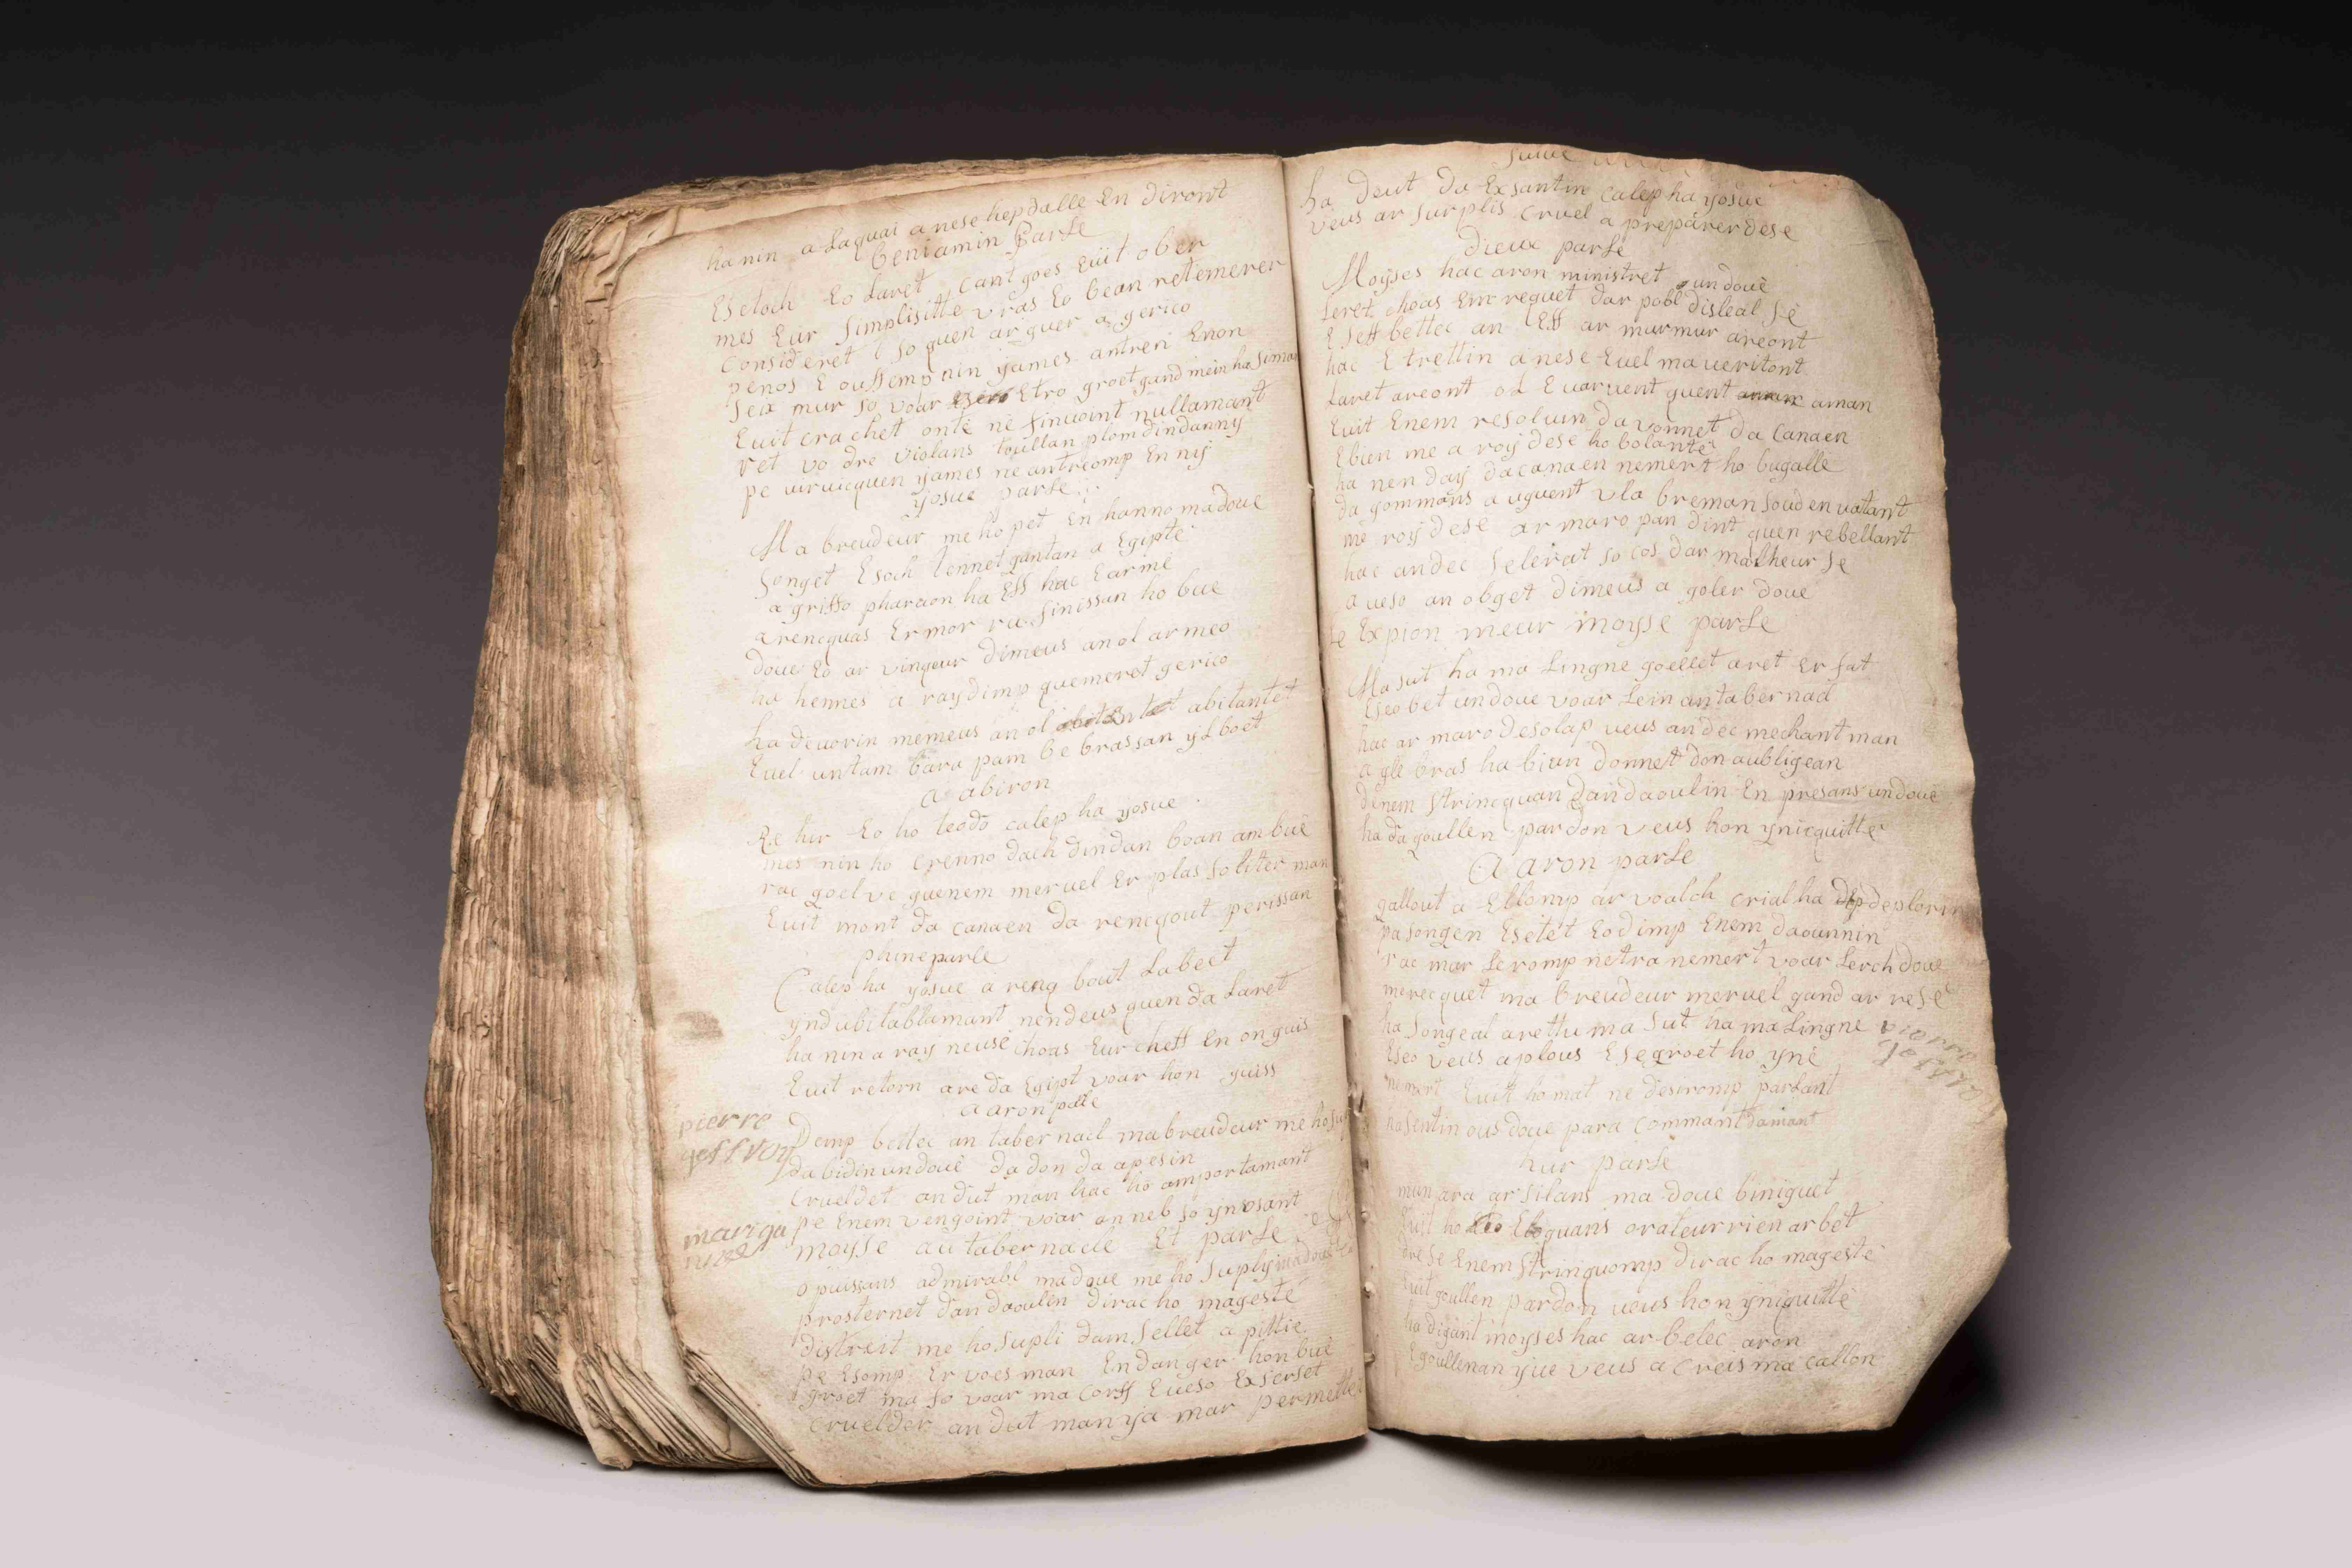 ha nin a laquai anese hep dalle En diront
beniamin Parle
Esetoch Eo Laret cant goes Euit ober
mes Eur simplisitte vras Eo bean retemerer
Consideret so quen ar guer a gerico
penos E outtemp nin yames antren Enon
seix mur so voar Etro groet gand mein ha
Euit crachet onte ne finuoint nullamant
ret vo dre violans toullan plom dindanny
pe viruicquen yames ne antreomp En ny
yosue parle
Ma breudeur me ho pet En hanno ma doue
songet Esoch tennet gantan a Egipte
a griffo pharaon ha Eff hac Earme
a rencquas Er mor ru finissan ho bue
doue Eo ar vingeur dimeus an ol armeo
ha hennes a ray dimp quemeret gerico
ha deuorin memeus an ol abitantet
Euel un tam bara pam be brassan yl boet
a abiron
Re hir Eo ho teodo calep ha yosue
mes nin ho Crenno dach dindan boan am bue
rac goel ve guenem meruel Er plas soliter man
Euit mont da canaen da rencqout perissan
phine parle
Calep ha yosue a renq bout Labeet
yndubitablamant nendeus quen da Laret
ha nin a ray neuse choas Eur cheff En on guis
Euit retorn are da Egipt voar hon guiss
aaron
pierre
Demp bettec an tabernacl ma breudeur me ho
da bidin un doue da don da apesin
Crueldet an dut man hac ho amportamant
pe Enem vengoint voar an neb so ynosant
moyse au tabernacle Et parle
o puissans admirabl ma doue me ho suply
prosternet dan daoulin dirac ho mageste
me ho supli dam sellet a pittie
pe Esomp Er voes man En danger hon bue
groet ma so voar ma corff Eueso Exserset
crueldet an dut man ya mar
ha deut da Exsantin calep ha yosue
veus ar surplis cruel a preparer dese
dieux parle
Moyses hac aron ministret un doue
Leret choas Em requet dar pobl disleal se
Eseff bettec an Eff ar murmur areont
hac E trettin anese Euel ma veritont
Laret areont ol E varvent quent aman
Euit Enem resoluin da vonnet da Canaen
Ebien me a roy dese ho bolante
ha nen day da canaen nemert ho bugalle
da gommans a uguent vla breman souden vatant
me roy dese ar maro pan dint quen rebellant
hac an dec selerat so cos dar malheur se
a veso an obget dimeus a goler doue
moyse parle
Ma sut ha ma Lingne goellet aret Er fat
Eseo bet un doue voar Lein an tabernacl
hac ar maro desolap veus an dec mechant man
a gle bras ha bian donnet don aubligean
denem strincquan dan daoulin En presans un doue
ha da goullen pardon veus hon ynicquitte
Aaron parle
gallout a Ellomp ar voalch crial ha deplorin
pa songen Esetet Eo dimp Enem daounnin
rac mar Leromp netra nemert voar Lerch doue
merecquet ma breudeur meruel gand ar rese
ha songeal arettu ma sut ha ma Lingne
Eseo veus aplous Ese groet ho yne
nemert Euit ho mat ne desiromp parlant
na sentin ous doue para commant
hur parle
mun ara ar silans ma doue biniguet
Euit ho Eloquans orateur rien ar bet
drese Enem strinquomp dirac ho mageste
Euit goullen pardon veus hon yniquitte
ha digant moyses hac ar belec aron
Egoullenan yue veus a creis ma callon